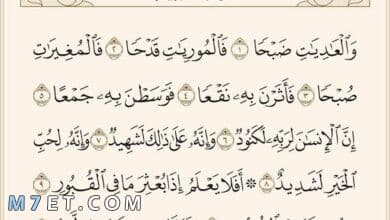 وَٱلْعَٰدِيَٰتِ ضَبْحًا ١ فَٱلْمُورِيَٰتِ قَدْحًا ٢ فَٱلْمُغِيرَٰتِ
صُبْحًا ٣ فَأَثَرْنَ بِهِۦ نَقْعًا ٤ فَوَسَطْنَ بِهِۦ جَمْعًا ٥
إِنَّ ٱلْإِنسَٰنَ لِرَبِّهِۦ لَكَنُودٌ ٦ وَإِنَّهُۥ عَلَىٰ ذَٰلِكَ لَشَهِيدٌ ٧ وَإِنَّهُۥ لِحُبِّ
ٱلْخَيْرِ لَشَدِيدٌ ٨ ۞ أَفَلَا يَعْلَمُ إِذَا بُعْثِرَ مَا فِى ٱلْقُبُورِ ٩
M7ET.COM